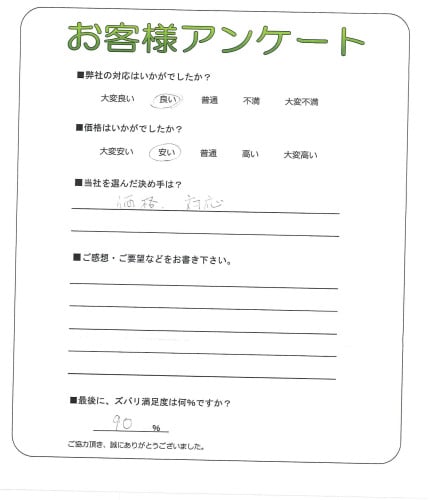 お客様アンケート
■弊社の対応はいかがでしたか？
大変良い 良い 普通 不満 大変不満
■価格はいかがでしたか？
大変安い 安い 普通 高い 大変高い
■当社を選んだ決め手は？
価格、対応
■ご感想・ご要望などをお書き下さい。
■最後に、ズバリ満足度は何%ですか？
90 %
ご協力頂き、誠にありがとうございました。